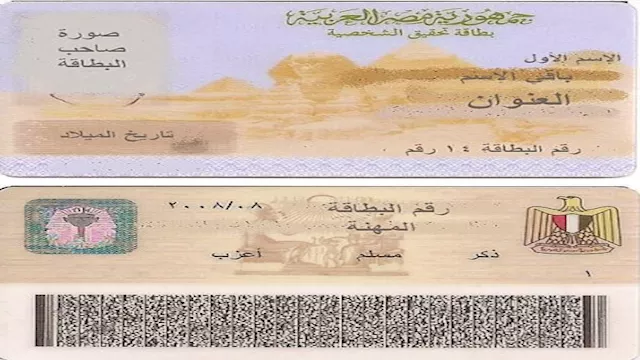 جمهورية مصر العربية
بطاقة تحقيق الشخصية
صورة
صاحب
البطاقة
الإسم الأول
باقي الإسم
العنوان
تاريخ الميلاد
رقم البطاقة ١٤ رقم
رقم البطاقة ٢٠٠٨/٠٨
المهنة
ذكر مسلم أعزب
١